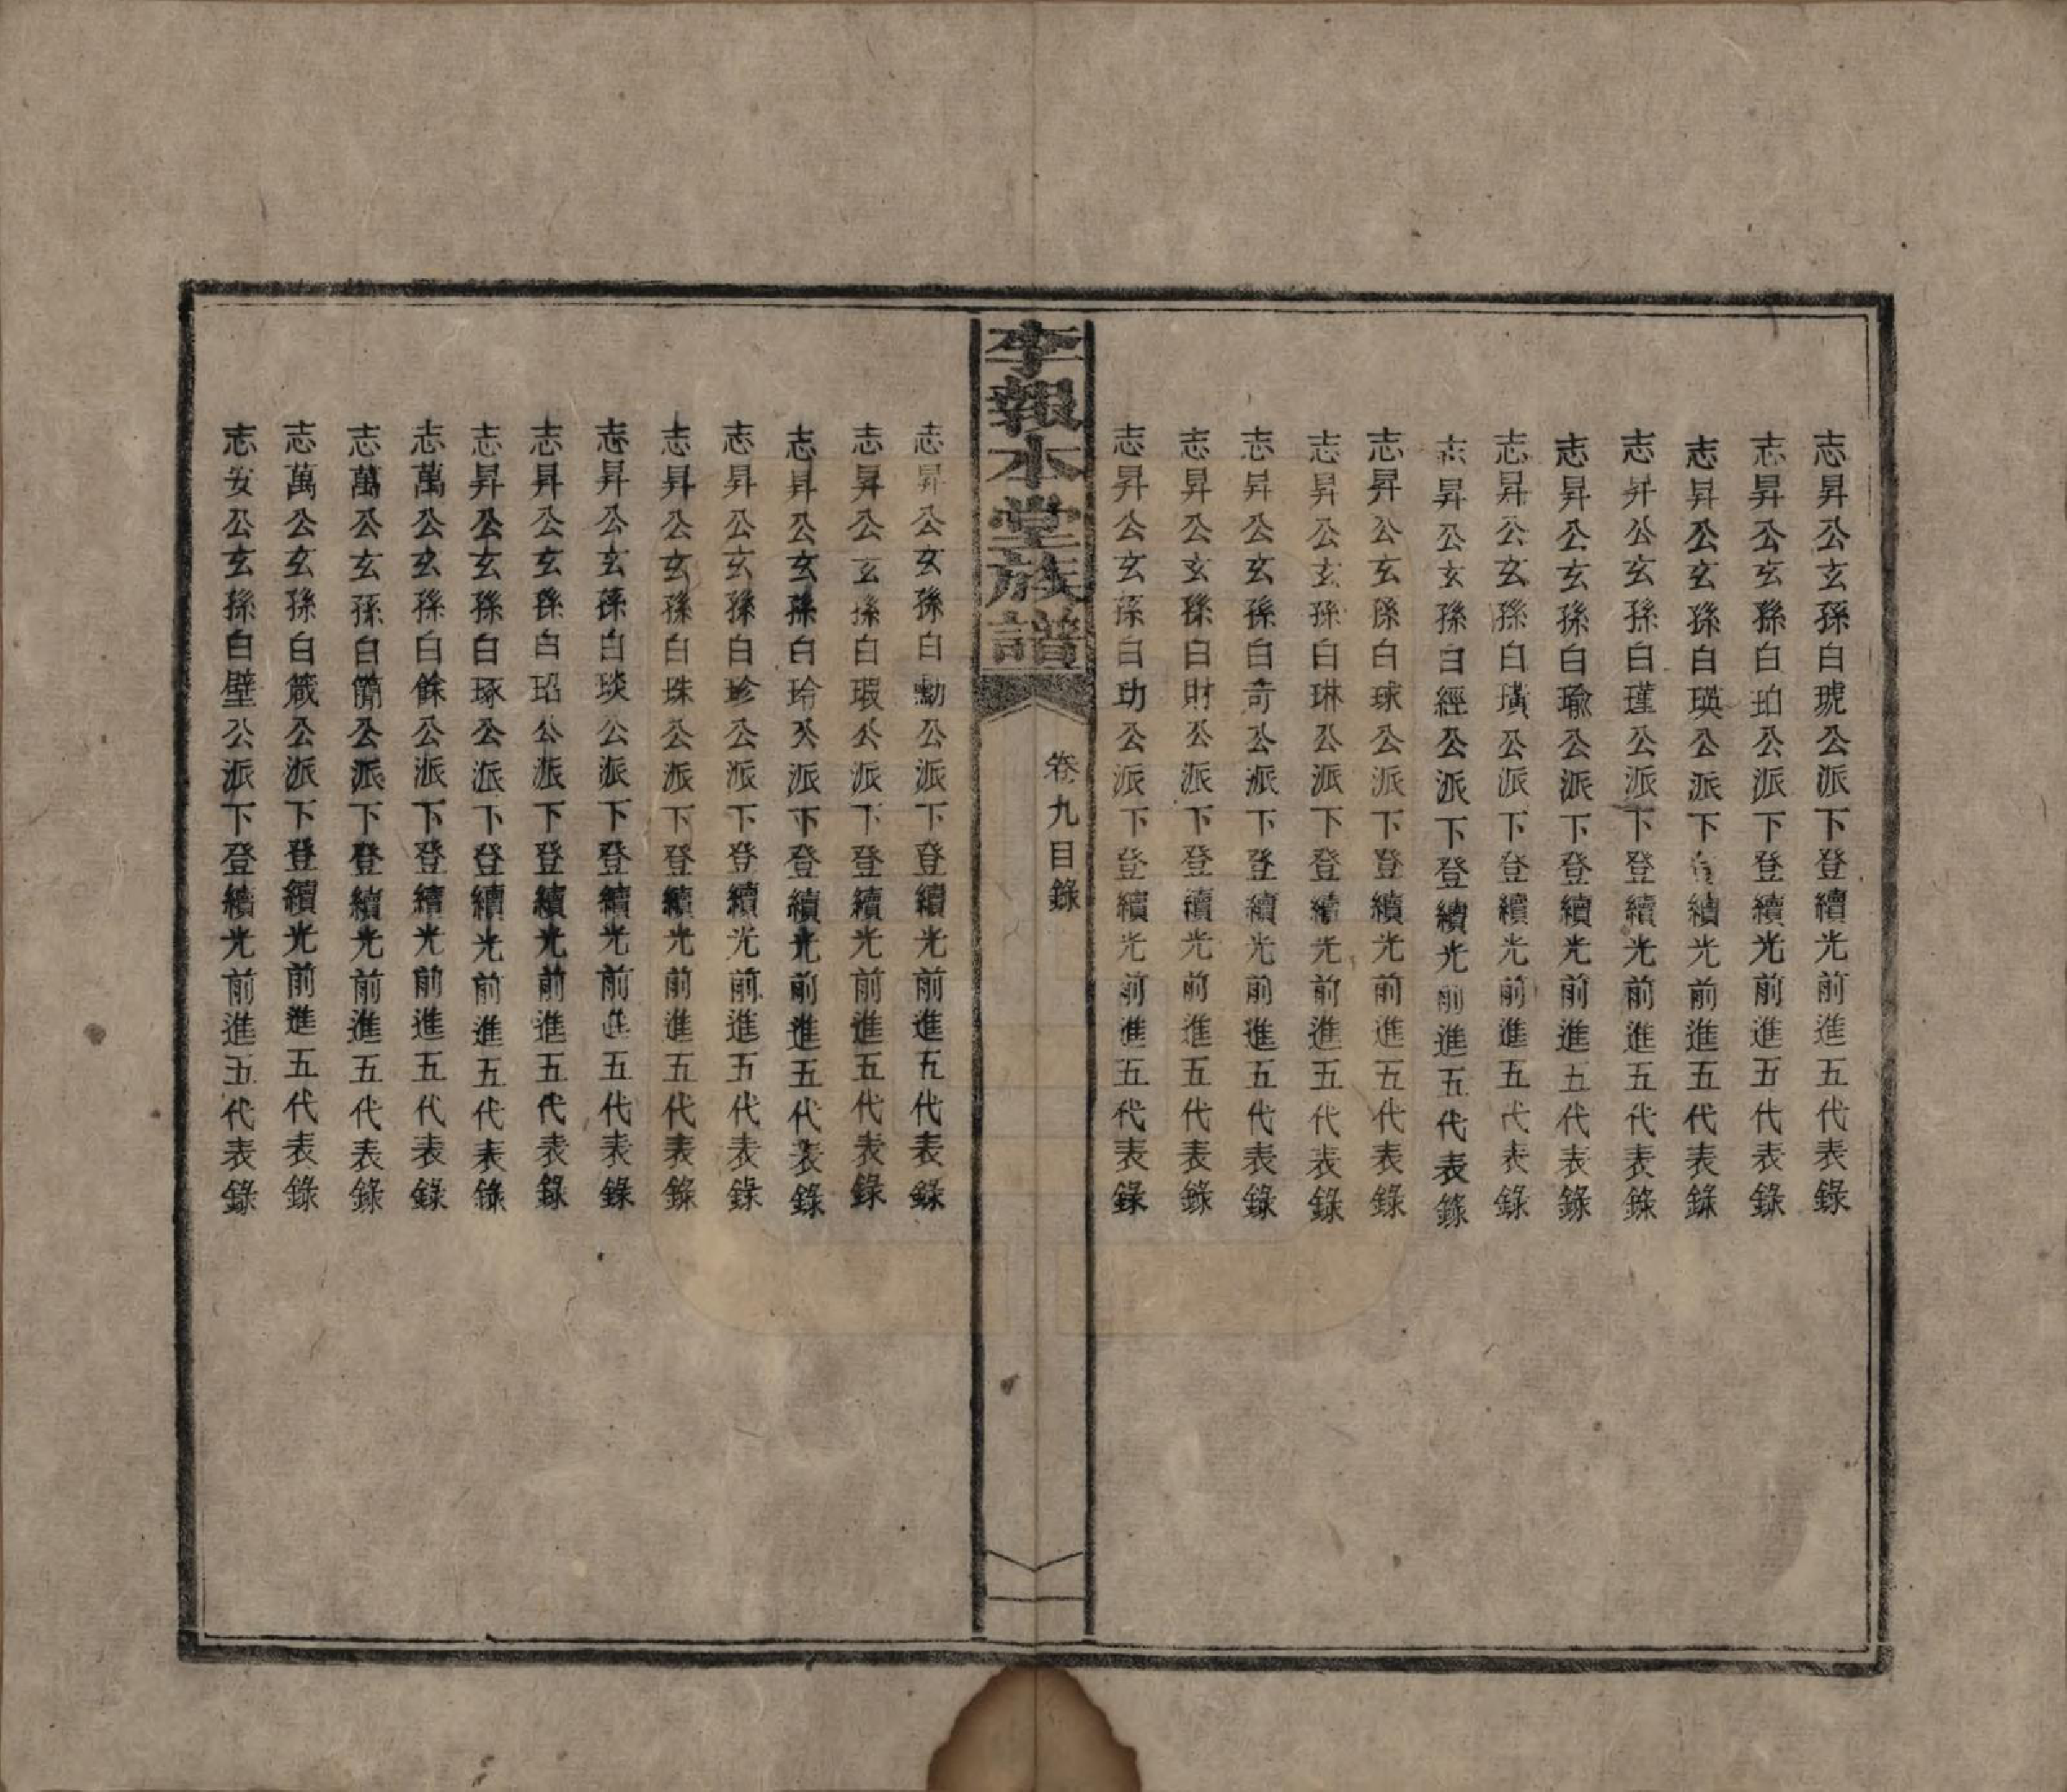 志昇公玄孫白琥公派下登續光前進五代表錄
志昇公玄孫白珀公派下登續光前進五代表錄
志昇公玄孫白瑛公派下登續光前進五代表錄
志昇公玄孫白瑾公派下登續光前進五代表錄
志昇公玄孫白瑜公派下登續光前進五代表錄
志昇公玄孫白璜公派下登續光前進五代表錄
志昇公玄孫白經公派下登續光前進五代表錄
志昇公玄孫白球公派下登續光前進五代表錄
志昇公玄孫白琳公派下登續光前進五代表錄
志昇公玄孫白奇公派下登續光前進五代表錄
志昇公玄孫白財公派下登續光前進五代表錄
志昇公玄孫白玏公派下登續光前進五代表錄
李報本堂族譜
卷九目錄
志昇公玄孫白勳公派下登續光前進五代表錄
志昇公玄孫白瑕公派下登續光前進五代表錄
志昇公玄孫白玲公派下登續光前進五代表錄
志昇公玄孫白珍公派下登續光前進五代表錄
志昇公玄孫白珠公派下登續光前進五代表錄
志昇公玄孫白琰公派下登續光前進五代表錄
志昇公玄孫白玿公派下登續光前進五代表錄
志昇公玄孫白琢公派下登續光前進五代表錄
志萬公玄孫白餘公派下登續光前進五代表錄
志萬公玄孫白簡公派下登續光前進五代表錄
志萬公玄孫白箴公派下登續光前進五代表錄
志安公玄孫白璧公派下登續光前進五代表錄